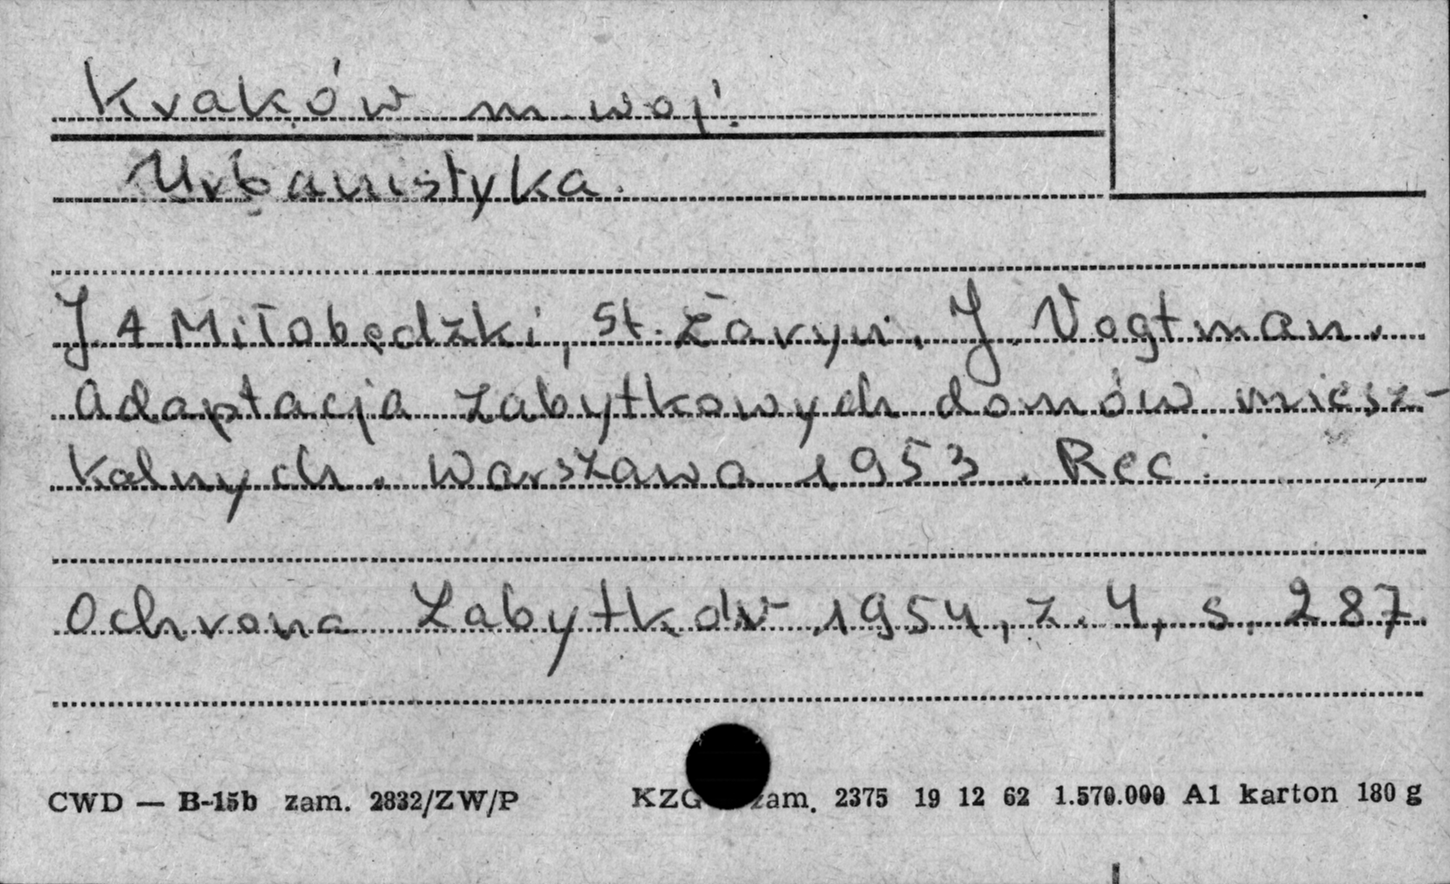 Kraków m. woj.
Urbanistyka.
J. A Miłobędzki, St. Żaryn, J. Vogtman.
Adaptacja zabytkowych domów miesz-
kalnych. Warszawa 1953. Rec.
Ochrona Zabytków 1954, z. 4, s. 287.
CWD — B-15b zam. 2832/ZW/P KZG zam. 2375 19 12 62 1.570.000 A1 karton 180 g